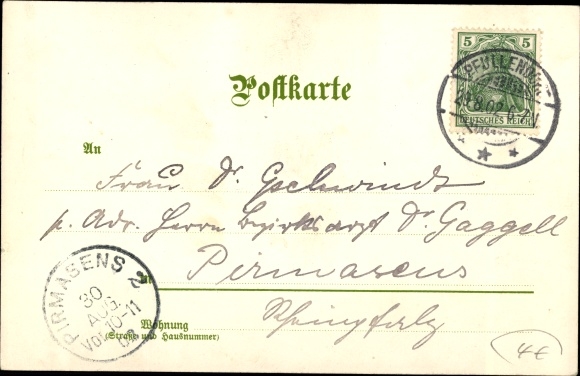 Postkarte
5 5
DEUTSCHES REICH
PFULLENDORF
29.8.02.6-7V.
An
Frau Dr. Gschwindt
p. Adr. Herrn Bezirksarzt Dr. Gaggell
in Pirmasens
Rheinpfalz
Wohnung
(Straße und Hausnummer)
PIRMASENS 2
30
AUG
VOR 10-11
02
4€